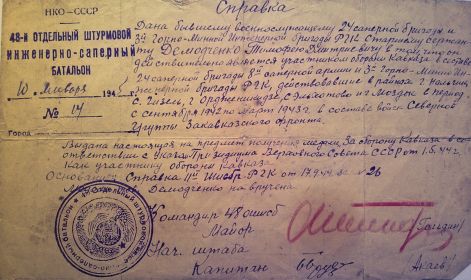 НКО-СССР
48-й ОТДЕЛЬНЫЙ ШТУРМОВОЙ
инженерно-саперный
БАТАЛЬОН
10 января 194
№ 17
Город
Справка
Дана бывшему военнослужащему 24 саперной бригады и
3й Горно-Минной Инженерной бригады РГК Старшему Сержан
ту Демодченко Тимофею Дмитриевичу в том, что он
действительно является участником обороны Кавказа в составе
24 саперной бригады 8й саперной армии и 3й Горно-Минной Ин
женерной бригады РГК, действовавшие в районе г.
с. Гизель, г. Орджоникидзе, с. Эльхотово из Моздок в период
с сентября 1942 по Март 1943г, в составе войск Северной
Группы Закавказского фронта.
Выдана настоящая на предмет получения медали За оборону Кавказа в со
ответствии с Указа Президиума Верховного Совета СССР от 1.5.44г.
Как участнику обороны Кавказа.
Основание Справка РГК от 17.9.44 № 26
Демодченко на вручена
Командир 48 ошисб
Майор
Нач. штаба
Капитан